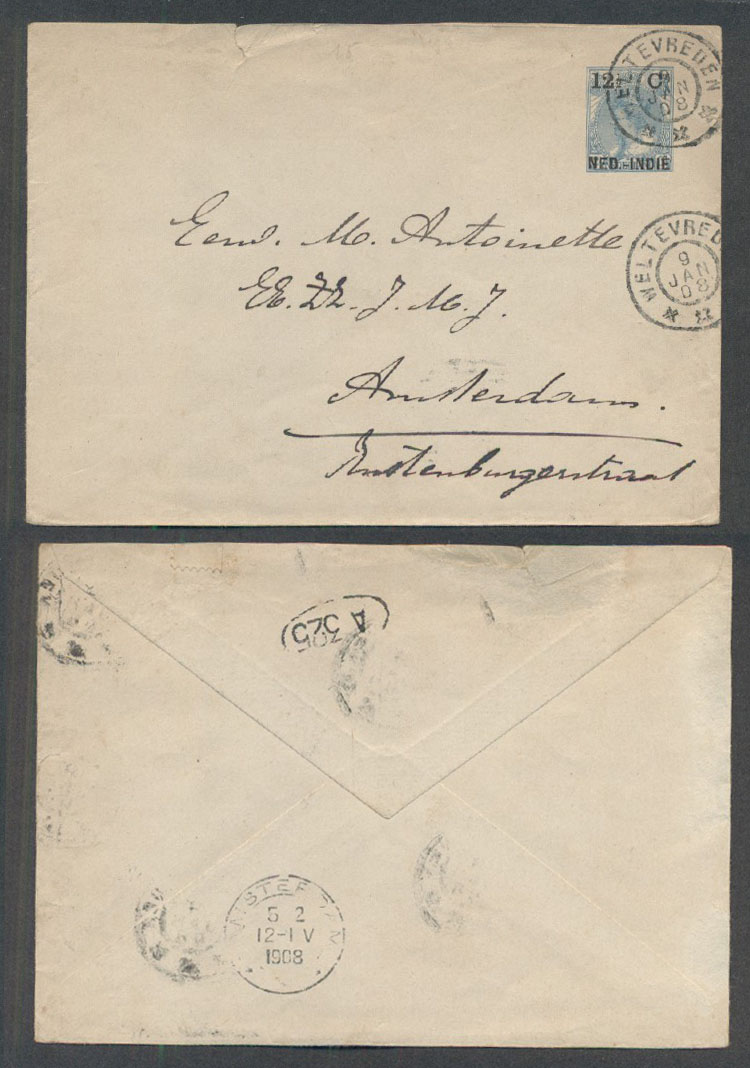 12½ Ct
NED.-INDIË
WELTEVREDEN
9
JAN
08
WELTEVREDE
9
JAN
08
Eerw. M. Antoinette
EE. ZZ. J. M. J.
Amsterdam.
Rustenburgerstraat
A
325
5 2
12-1 V
1908